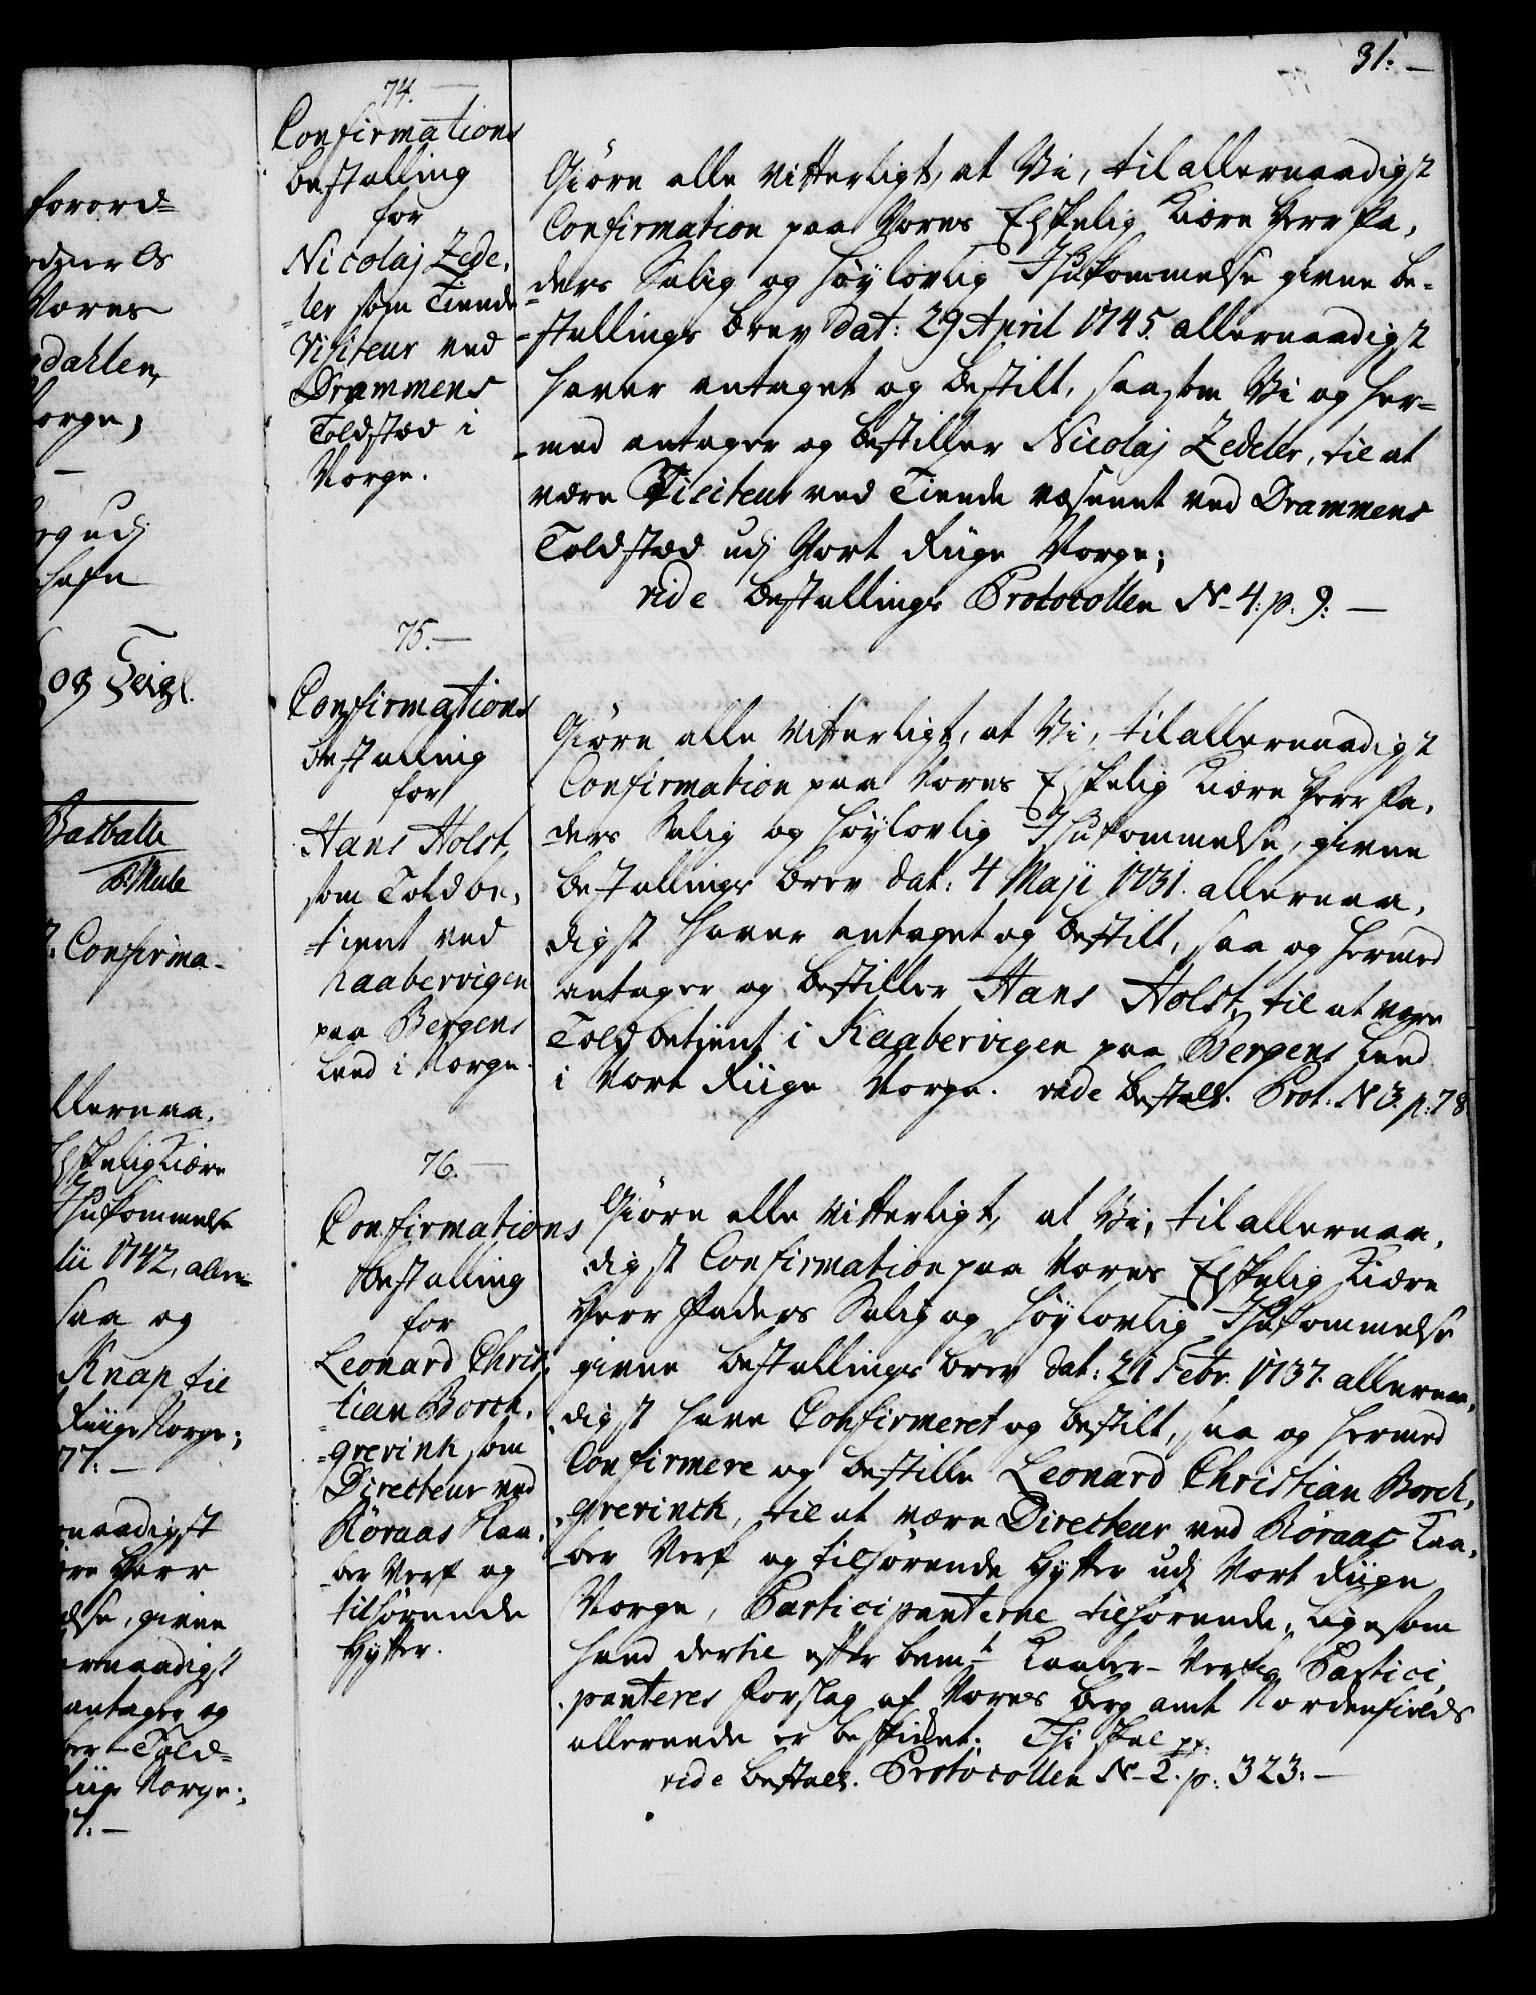 31.
forord=
Vores
dahlen,
Norge;
og udj
og Seigl.
Basballe
B. Mule
Confirma-
llernaa,
Elskelig Kiære
Ihukommelse
lii 1742, aller=
saa og
Knap til
Riige Norge;
77.
naadigst
Herr
else, givne
ernaadigst
antager og
Told=
Riige Norge;
74.
Confirmations
bestalling
for
Nicolaj Zede,
=ler som Tiende
Visiteur ved
Drammens
Toldsted i
Norge.
Giöre alle vitterligt, at Vi, til allernaadigst
Confirmation paa Vores Elskelig Kiære Herr Fa,
=ders Salig og Höylovlig Ihukommelse givne be=
=stallings brev dat: 29 April 1745. allernaadigst
haver antaget og bestilt, saasom Vi og her=
=med antager og bestiller Nicolaj Zedeler, til at
være Visiteur ved Tiende væsenet ved Drammens
Toldsted udj Vort Riige Norge;
vide bestallings Protocollen N- 4: p: 9:
75.
Confirmations
bestalling
for
Hans Holst,
som Toldbe,
=tient ved
Kaabervigen
paa Bergens
Leed i Norge.
Giöre alle vitterligt, at Vi, til allernaadigst
Confirmation paa Vores Elskelig Kiære Herr Fa,
=ders Salig og Höylovlig Ihukommelse, givne
bestallings brev dat: 4 Maji 1731. allernaa,
digst haver antaget og bestilt, saa og hermed
antager og bestiller Hans Holst, til at være
Toldbetient i Kaabervigen paa Bergens Leed
i Vort Riige Norge. vide bestall. Prot: N 3. p: 78
76.
Confirmations
bestalling
for
Leonard Chris,
=tian Borch,
=grevink som
Directeur ved
Röraas Kaa,
=ber Verk og
tilhörende
Hytter.
Giöre alle vitterligt, at Vi, til allernaa,
digst Confirmation paa Vores Elskelig Kiære
Herr Faders Salig og Höylovlig Ihukommelse
givne bestallings brev dat: 21 Febr. 1737. allernaa,
digst have Confirmeret og bestilt, saa og hermed
Confirmere og bestille Leonard Christian Borch,
grevinck, til at være Directeur ved Röraas Kaa,
=ber Verk og tilhörende Hytter udj Vort Riige
Norge, Participanterne tilhörende, ligesom
hand dertil efter bemt. Kaaber-Verks Partici,
panteres Forslag af Vores berg amt Nordenfields
allerede er beskicket. Thi skal pp.
vide bestall. Protocollen N- 2. p: 323: